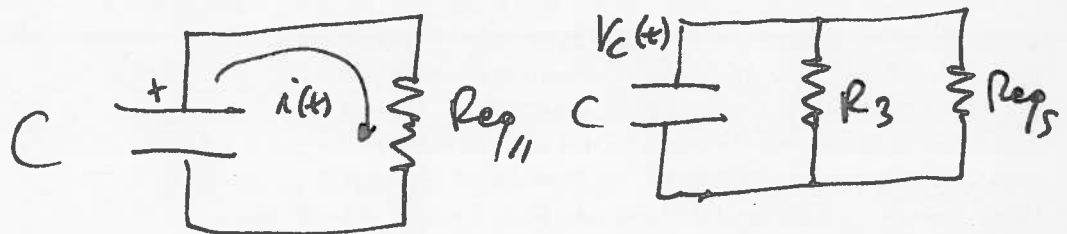 C + i(t) Req//
Vc(t) C R3 Reqs